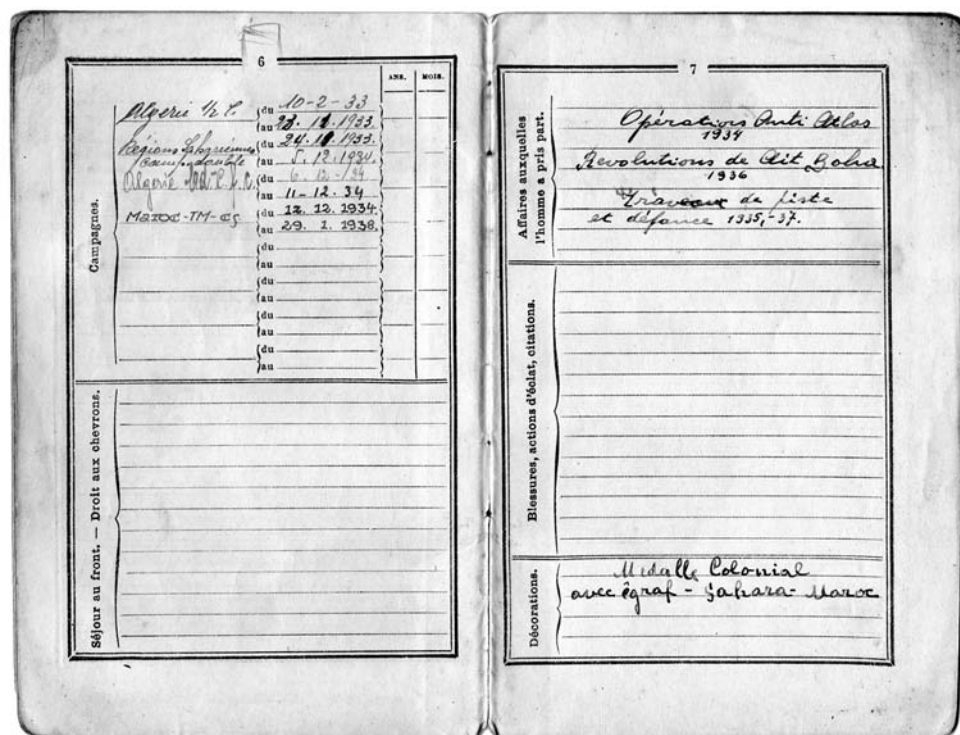 6
ANS. MOIS.
Campagnes.
Algerie 1/2 C. du 10-2-33
au 23. 11. 1933.
Régions Sahariennes du 24. 11. 1933.
Camp. double au 5. 12. 1934.
Algerie C. du 6-12-34
au 11-12. 34
Maroc-TM-CG du 12. 12. 1934.
au 29. 1. 1938.
du
au
du
au
du
au
du
au
Séjour au front. — Droit aux chevrons.
7
Affaires auxquelles
l'homme a pris part.
Opérations Anti Atlas
1934
Revolutions de Ait Boha
1936
Travaux de piste
et défance 1935,-37.
Blessures, actions d'éclat, citations.
Décorations.
Medalle Colonial
avec égraf - Sahara - Maroc